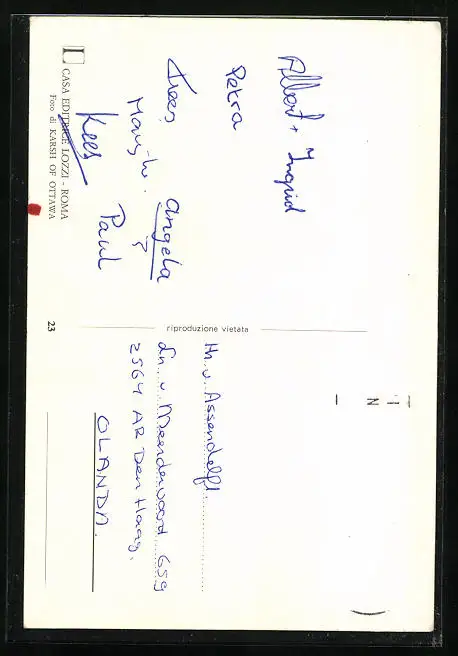 Albert + Ingrid
Petra
Trees
Angela
Kees
Paul
CASA EDITRICE LOZZI - ROMA
Foto di KARSH OF OTTAWA
23
riproduzione vietata
Hn. v. Assendelft.
Ln. v. Meerdervoord 659
2564 AR Den Haag.
OLANDA.